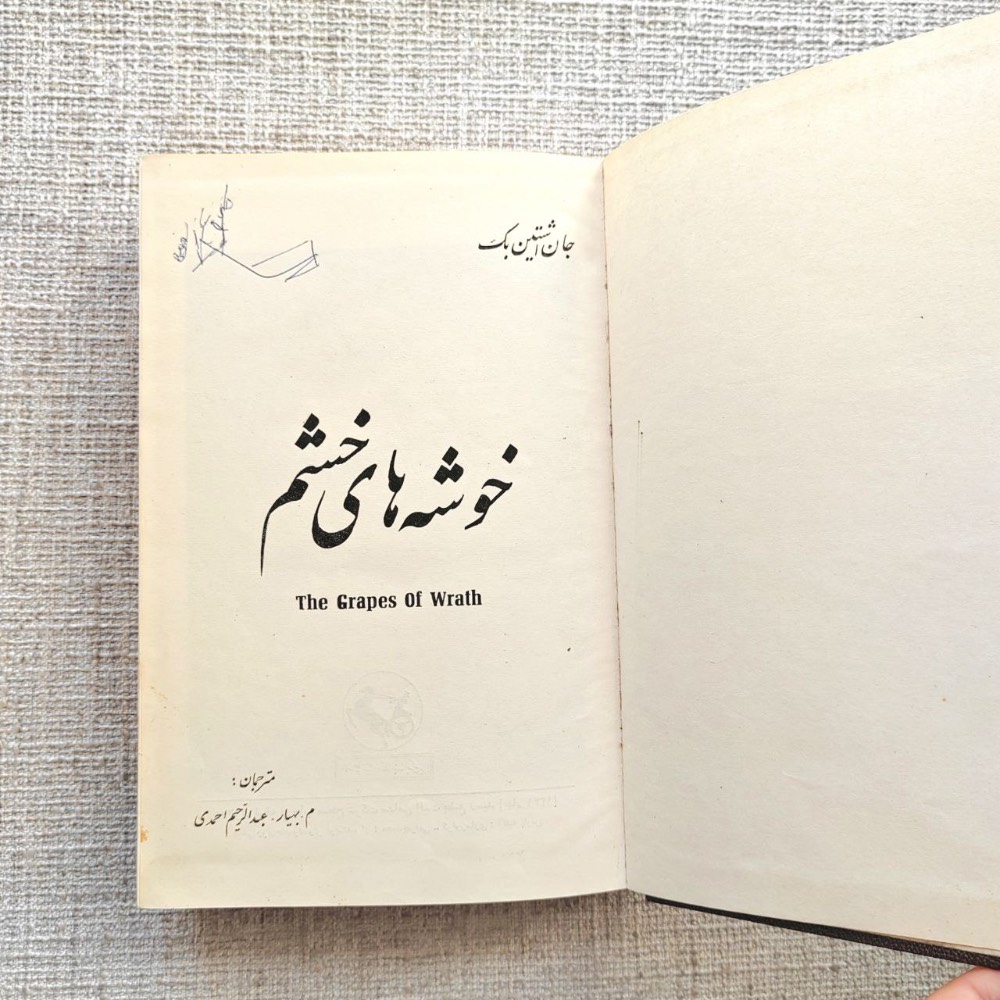 جان اشتین بک
خوشه های خشم
The Grapes Of Wrath
مترجمان :
م. بهیار. عبدالرّحیم احمدی